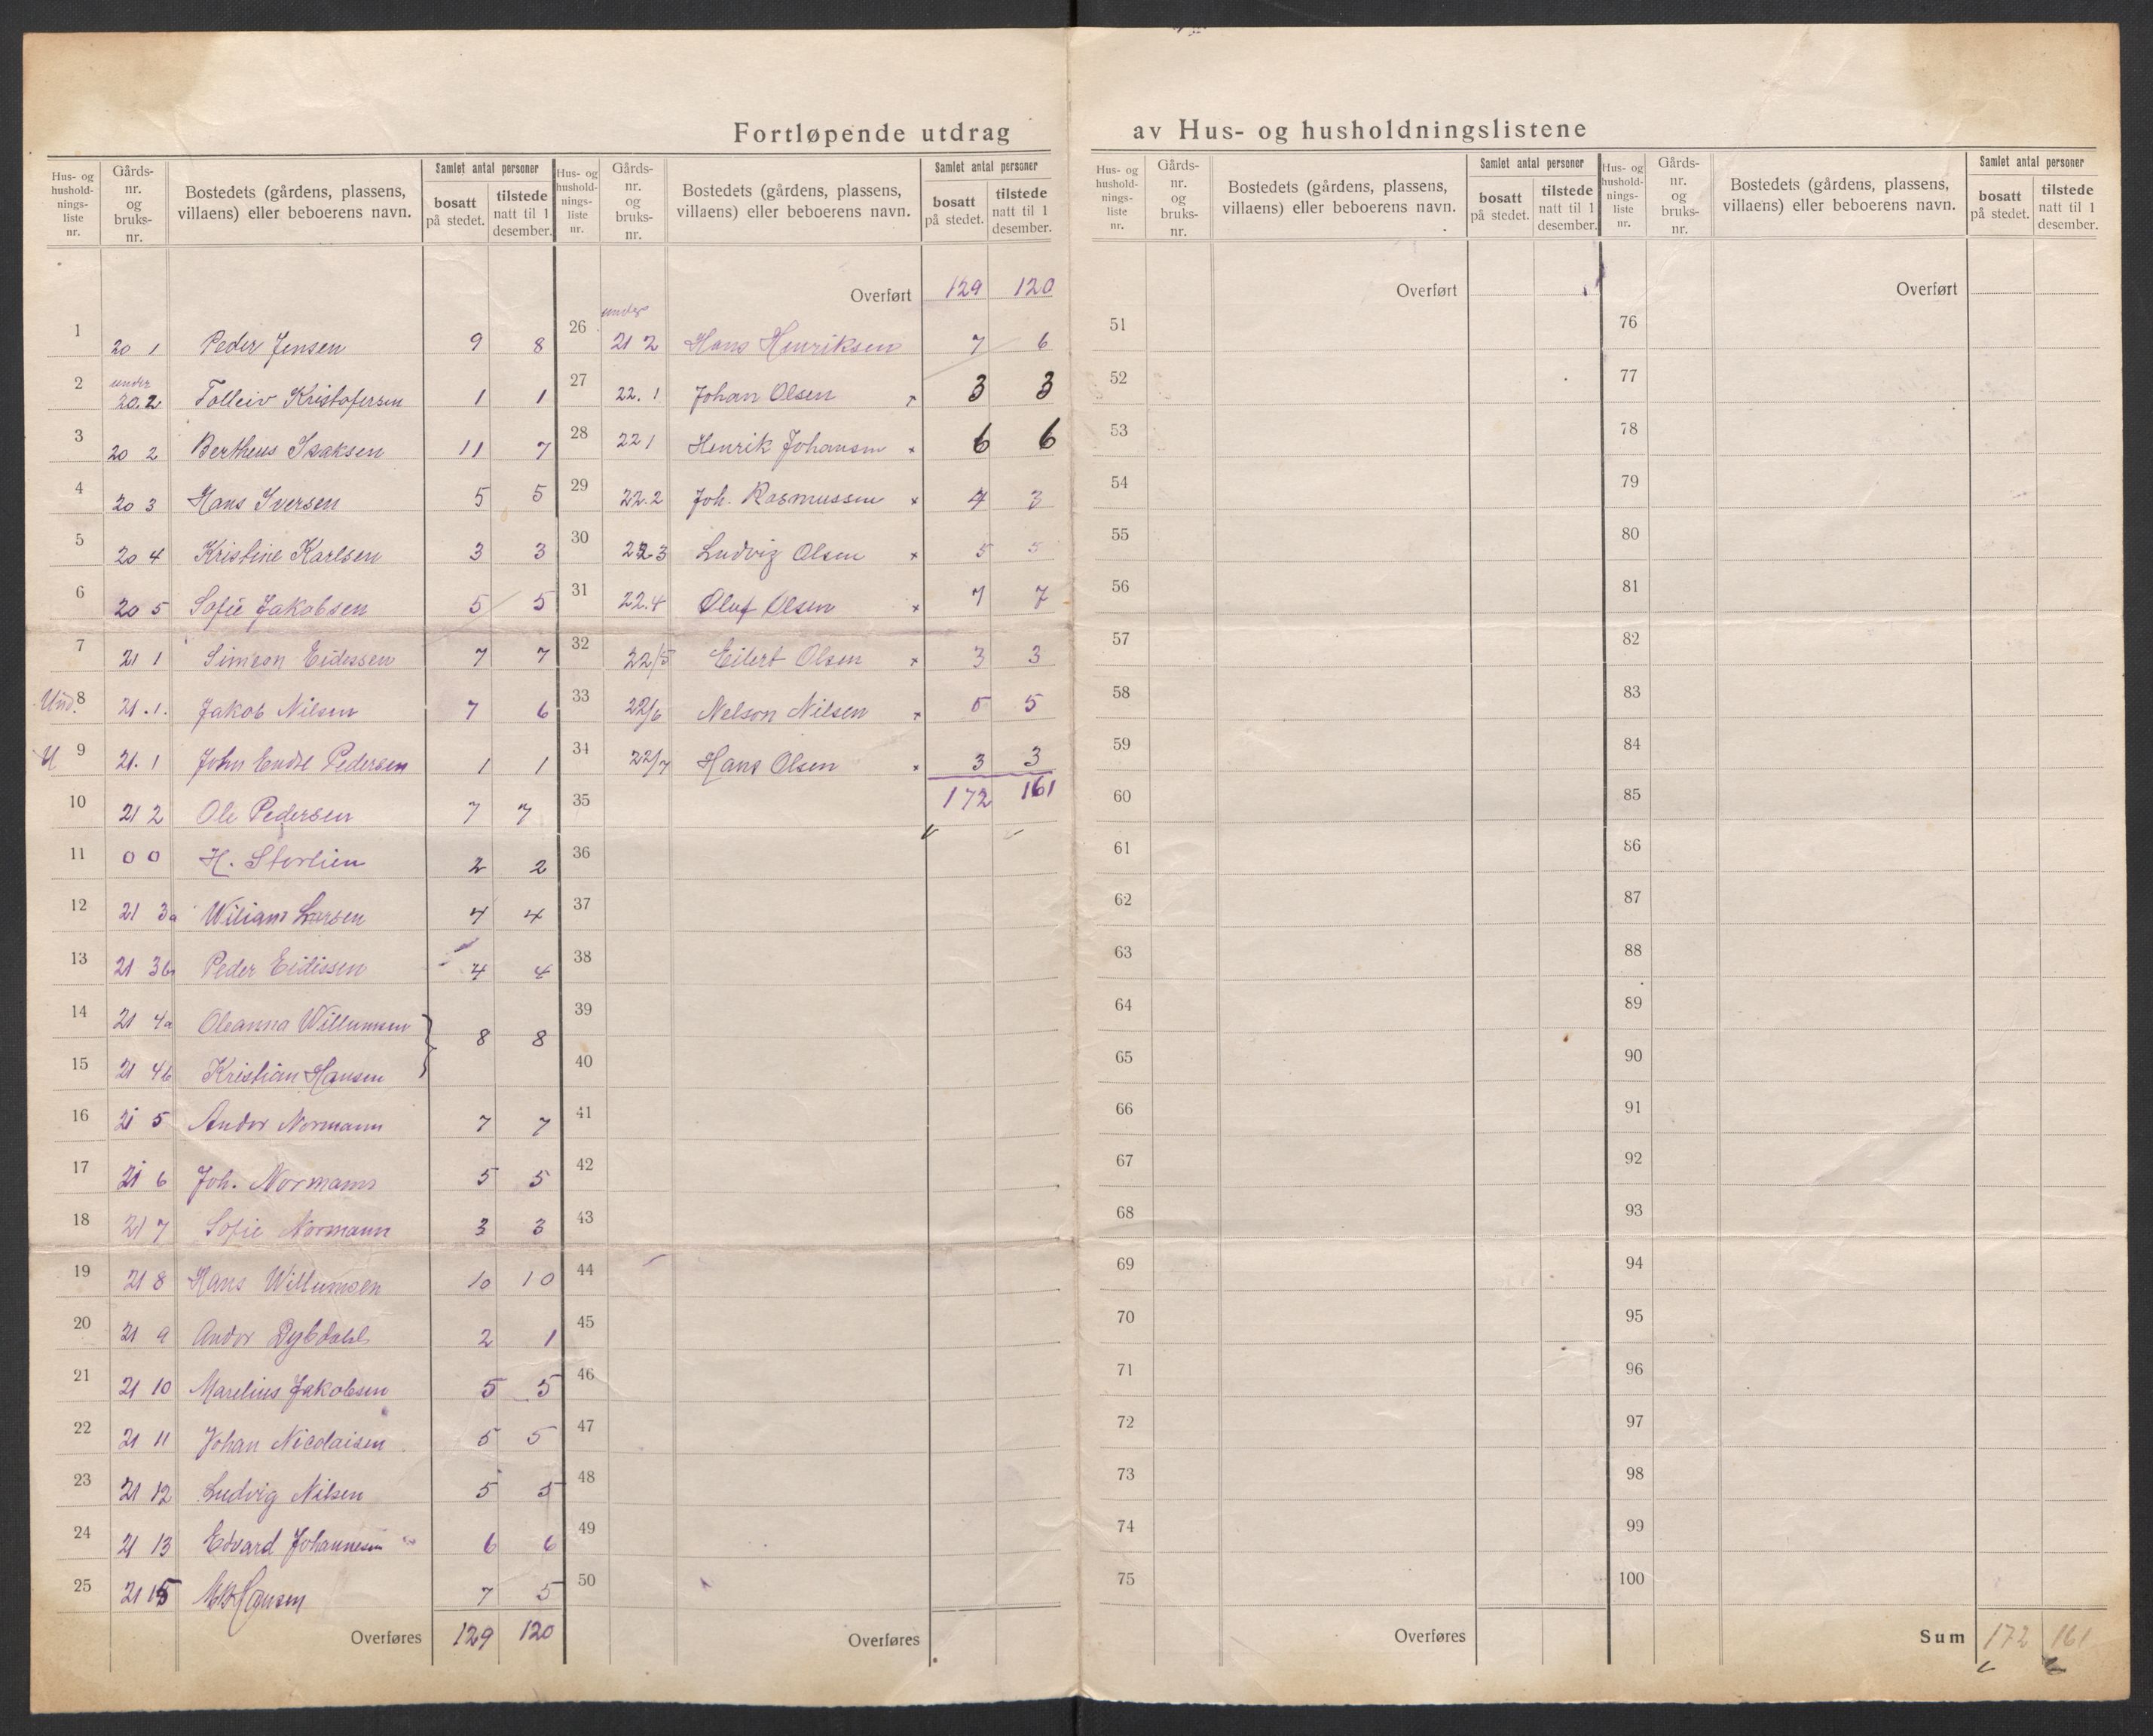 Fortløpende utdrag av Hus- og husholdningslistene
Hus- og hushold-nings-liste nr. | Gårds-nr. og bruks-nr. | Bostedets (gårdens, plassens, villaens) eller beboerens navn. | Samlet antal personer | bosatt på stedet. | tilstede natt til 1 desember.
1 | 20 1 | Peder Jensen | 9 | 8
2 | under 20.2 | Tolleiv Kristofersen | 1 | 1
3 | 20 2 | Bertheus Isaksen | 11 | 7
4 | 20 3 | Hans Iversen | 5 | 5
5 | 20 4 | Kristine Karlsen | 3 | 3
6 | 20 5 | Sofie Jakobsen | 5 | 5
7 | 21 1 | Simeon Eidissen | 7 | 7
Und. 8 | 21.1. | Jakob Nilsen | 7 | 6
U 9 | 21.1 | John Endre Pedersen | 1 | 1
10 | 21 2 | Ole Pedersen | 7 | 7
11 | 0 0 | H. Storlien | 2 | 2
12 | 21 3a | Wiliam Larsen | 4 | 4
13 | 21 3b | Peder Eidissen | 4 | 4
14 | 21 4a | Oleanna Willumsen } 8 | 8
15 | 21 4b | Kristian Hansen }
16 | 21 5 | Andor Normann | 7 | 7
17 | 21 6 | Joh. Normann | 5 | 5
18 | 21 7 | Sofie Normann | 3 | 3
19 | 21 8 | Hans Willumsen | 10 | 10
20 | 21 9 | Andor Dybdahl | 2 | 1
21 | 21 10 | Marelius Jakobsen | 5 | 5
22 | 21 11 | Johan Nicolaisen | 5 | 5
23 | 21 12 | Ludvig Nilsen | 5 | 5
24 | 21 13 | Edvard Johannesen | 6 | 6
25 | 21 15 | Hansen | 7 | 5
Overføres | 129 | 120
Hus- og hushold-nings-liste nr. | Gårds-nr. og bruks-nr. | Bostedets (gårdens, plassens, villaens) eller beboerens navn. | Samlet antal personer | bosatt på stedet. | tilstede natt til 1 desember.
Overført | 129 | 120
26 | under 21 2 | Hans Henriksen | 7 | 6
27 | 22.1 | Johan Olsen x | 3 | 3
28 | 22 1 | Henrik Johansen x | 6 | 6
29 | 22.2 | Joh. Rasmussen x | 4 | 3
30 | 22.3 | Ludvig Olsen x | 5 | 5
31 | 22.4 | Oluf Olsen x | 7 | 7
32 | 22/5 | Eilert Olsen x | 3 | 3
33 | 22/6 | Nelson Nilsen x | 5 | 5
34 | 22/7 | Hans Olsen x | 3 | 3
35 | 172 | 161
36
37
38
39
40
41
42
43
44
45
46
47
48
49
50
Overføres
Hus- og hushold-nings-liste nr. | Gårds-nr. og bruks-nr. | Bostedets (gårdens, plassens, villaens) eller beboerens navn. | Samlet antal personer | bosatt på stedet. | tilstede natt til 1 desember.
Overført
51
52
53
54
55
56
57
58
59
60
61
62
63
64
65
66
67
68
69
70
71
72
73
74
75
Overføres
Hus- og hushold-nings-liste nr. | Gårds-nr. og bruks-nr. | Bostedets (gårdens, plassens, villaens) eller beboerens navn. | Samlet antal personer | bosatt på stedet. | tilstede natt til 1 desember.
Overført
76
77
78
79
80
81
82
83
84
85
86
87
88
89
90
91
92
93
94
95
96
97
98
99
100
Sum | 172 | 161